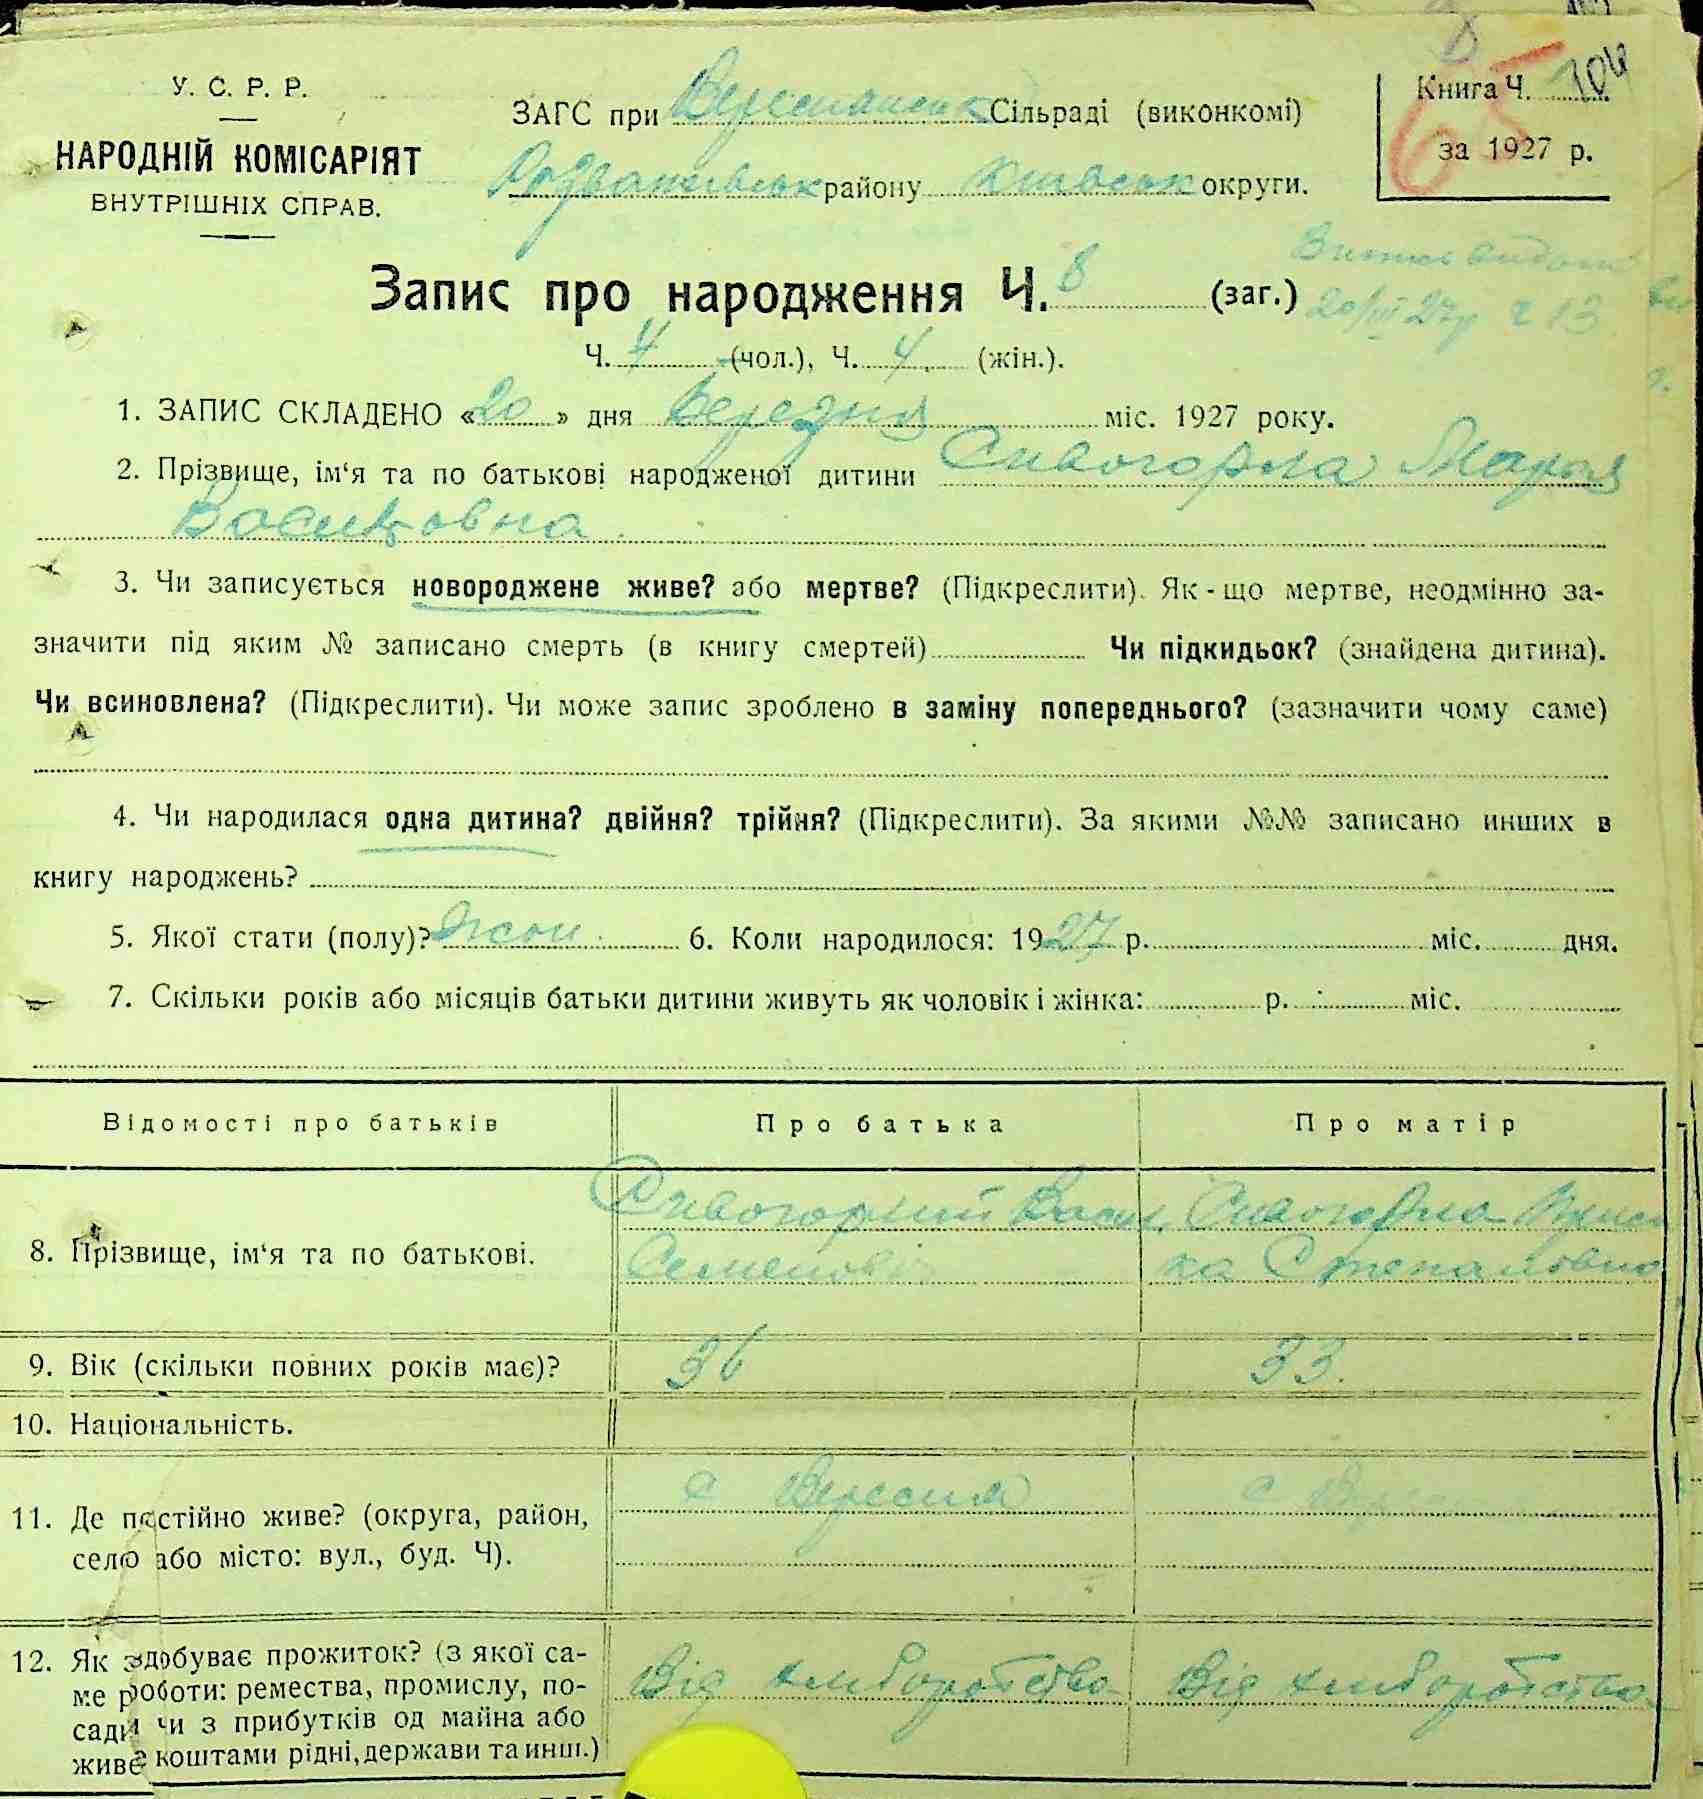 104
У. С. Р. Р.
НАРОДНІЙ КОМІСАРІЯТ
ВНУТРІШНІХ СПРАВ.
ЗАГС при Вереснянськ Сільраді (виконкомі)
Розважівськ району Київськ округи.
Книга Ч.
за 1927 р.
65
Запис про народження Ч. 8 (заг.)
Випис видом
20/III 27р Ч 13
Ч. 4 (чол.), Ч. 4 (жін.).
1. ЗАПИС СКЛАДЕНО «20» дня Березня міс. 1927 року.
2. Прізвище, ім‘я та по батькові народженої дитини Сивогорла Марія
Василовна
3. Чи записується новороджене живе? або мертве? (Підкреслити). Як-що мертве, неодмінно за-
значити під яким № записано смерть (в книгу смертей) Чи підкидьок? (знайдена дитина).
Чи всиновлена? (Підкреслити). Чи може запис зроблено в заміну попереднього? (зазначити чому саме)
4. Чи народилася одна дитина? двійня? трійня? (Підкреслити). За якими №№ записано инших в
книгу народжень?
5. Якої стати (полу)? Жон. 6. Коли народилося: 1927 р. міс. дня.
7. Скільки років або місяців батьки дитини живуть як чоловік і жінка: р. міс.
Відомості про батьків Про батька Про матір
8. Прізвище, ім‘я та по батькові. Сивогорлий Васил Сивогорла Приси
Семенові ка Степановна
9. Вік (скільки повних років має)? 36 33.
10. Національність.
11. Де постійно живе? (округа, район, с Вересня с Вере
село або місто: вул., буд. Ч).
12. Як здобуває прожиток? (з якої са- Від хліборобства Від хліборобства
ме роботи: ремества, промислу, по-
сади чи з прибутків од майна або
живе коштами рідні, держави та инш.)